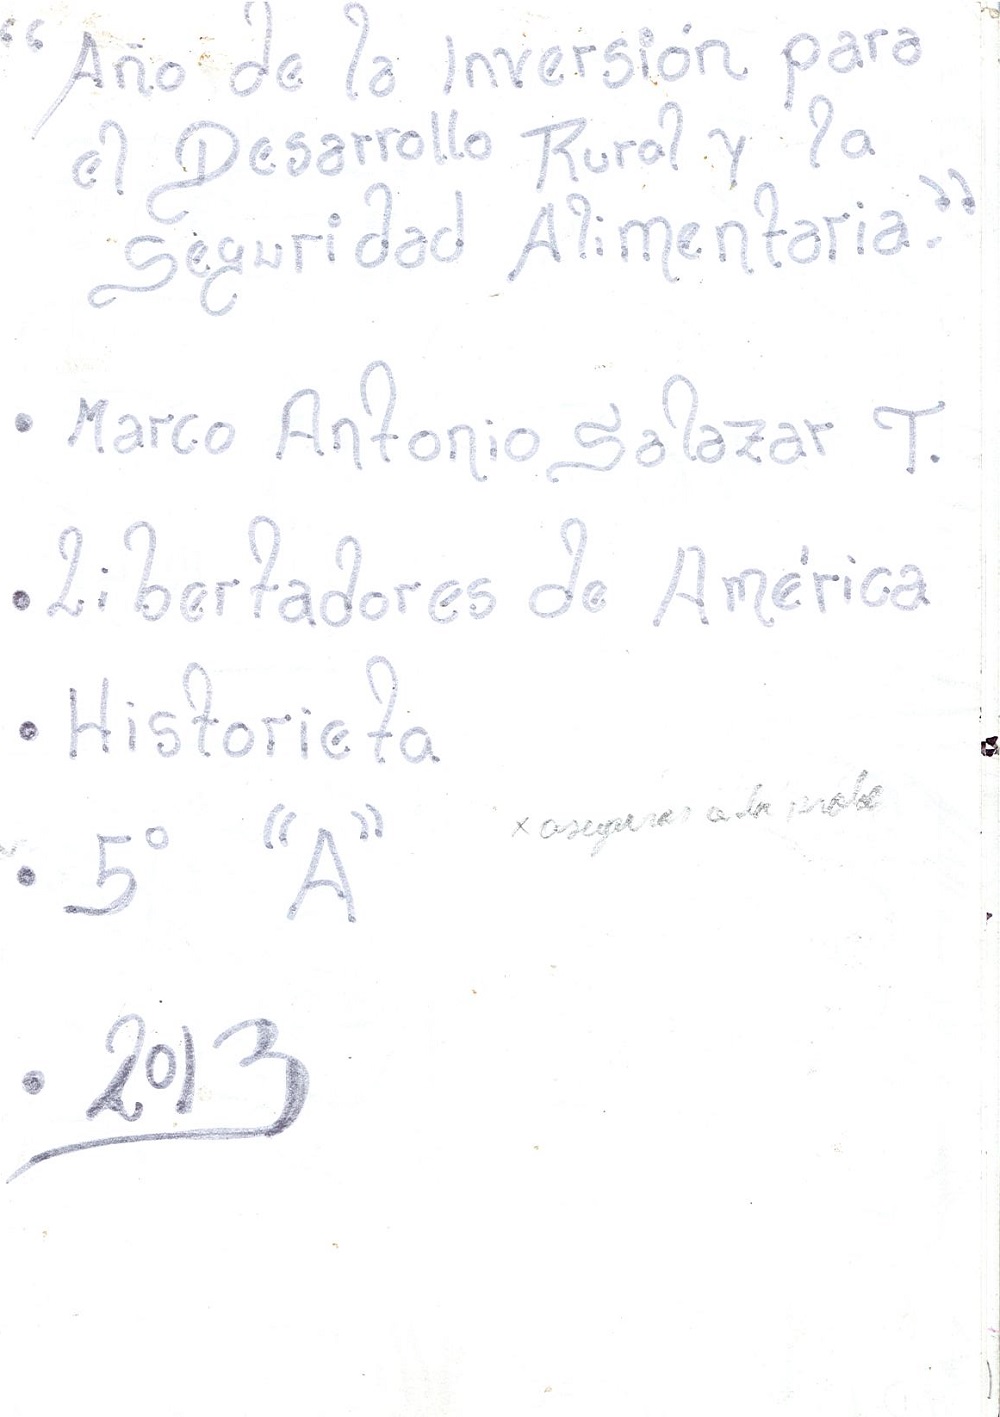 “Año de la Inversión para
el Desarrollo Rural y la
Seguridad Alimentaria.”
• Marco Antonio Salazar T.
• Libertadores de América
• Historieta
• 5° “A”
x a la
• 2013